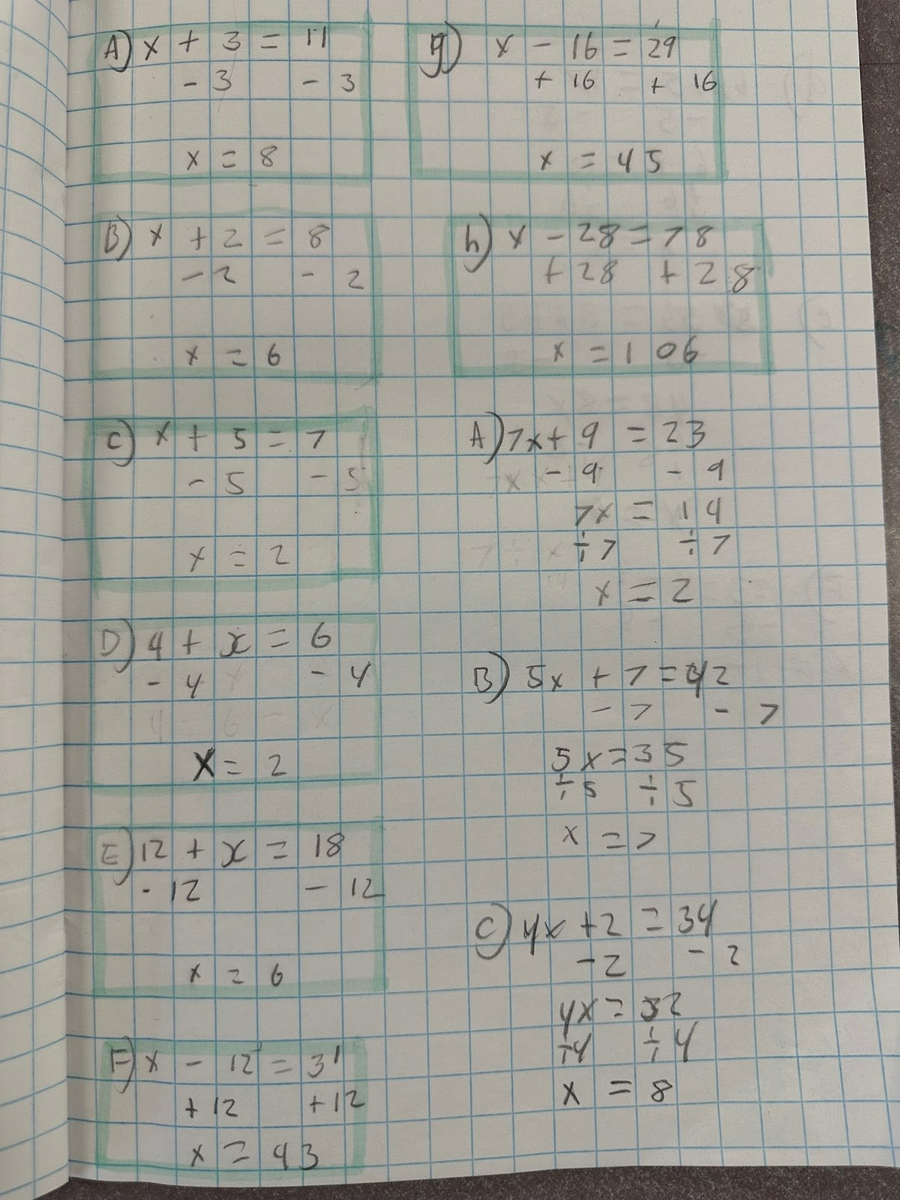 A) x + 3 = 11
- 3 - 3
x = 8
B) x + 2 = 8
- 2 - 2
x = 6
C) x + 5 = 7
- 5 - 5
x = 2
D) 4 + x = 6
- 4 - 4
x = 2
E) 12 + x = 18
- 12 - 12
x = 6
F) x - 12 = 31
+ 12 + 12
x = 43
g) x - 16 = 29
+ 16 + 16
x = 45
h) x - 28 = 78
+ 28 + 28
x = 106
A) 7x + 9 = 23
- 9 - 9
7x = 14
÷7 ÷7
x = 2
B) 5x + 7 = 42
- 7 - 7
5x = 35
÷5 ÷5
x = 7
C) 4x + 2 = 34
- 2 - 2
4x = 32
÷4 ÷4
x = 8